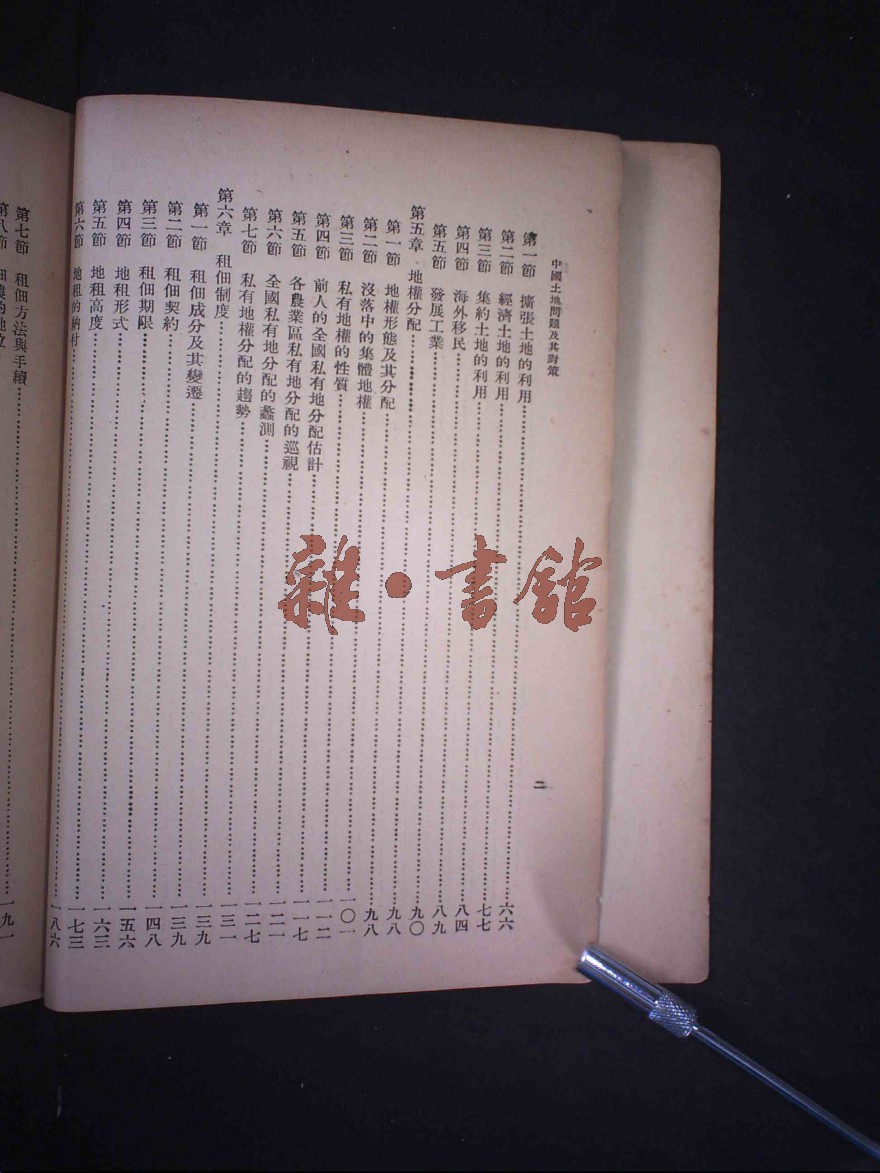 中國土地問題及其對策
二
第一節 擴張土地的利用……六六
第二節 經濟土地的利用……七七
第三節 集約土地的利用……八四
第四節 海外移民……八九
第五節 發展工業……九〇
第五章 地權分配……九八
第一節 地權形態及其分配……九八
第二節 沒落中的集體地權……一〇一
第三節 私有地權的性質……一一二
第四節 前人的全國私有地分配估計……一一七
第五節 各農業區私有地分配的巡視……一二一
第六節 全國私有地分配的蠡測……一二七
第七節 私有地權分配的趨勢……一三一
第六章 租佃制度……一三九
第一節 租佃成分及其變遷……一三九
第二節 租佃契約……一四八
第三節 租佃期限……一五六
第四節 地租形式……一六三
第五節 地租高度……一七三
第六節 地租的納付……一八六
第七節 租佃方法與手續……一九一
第八節
雜·書館